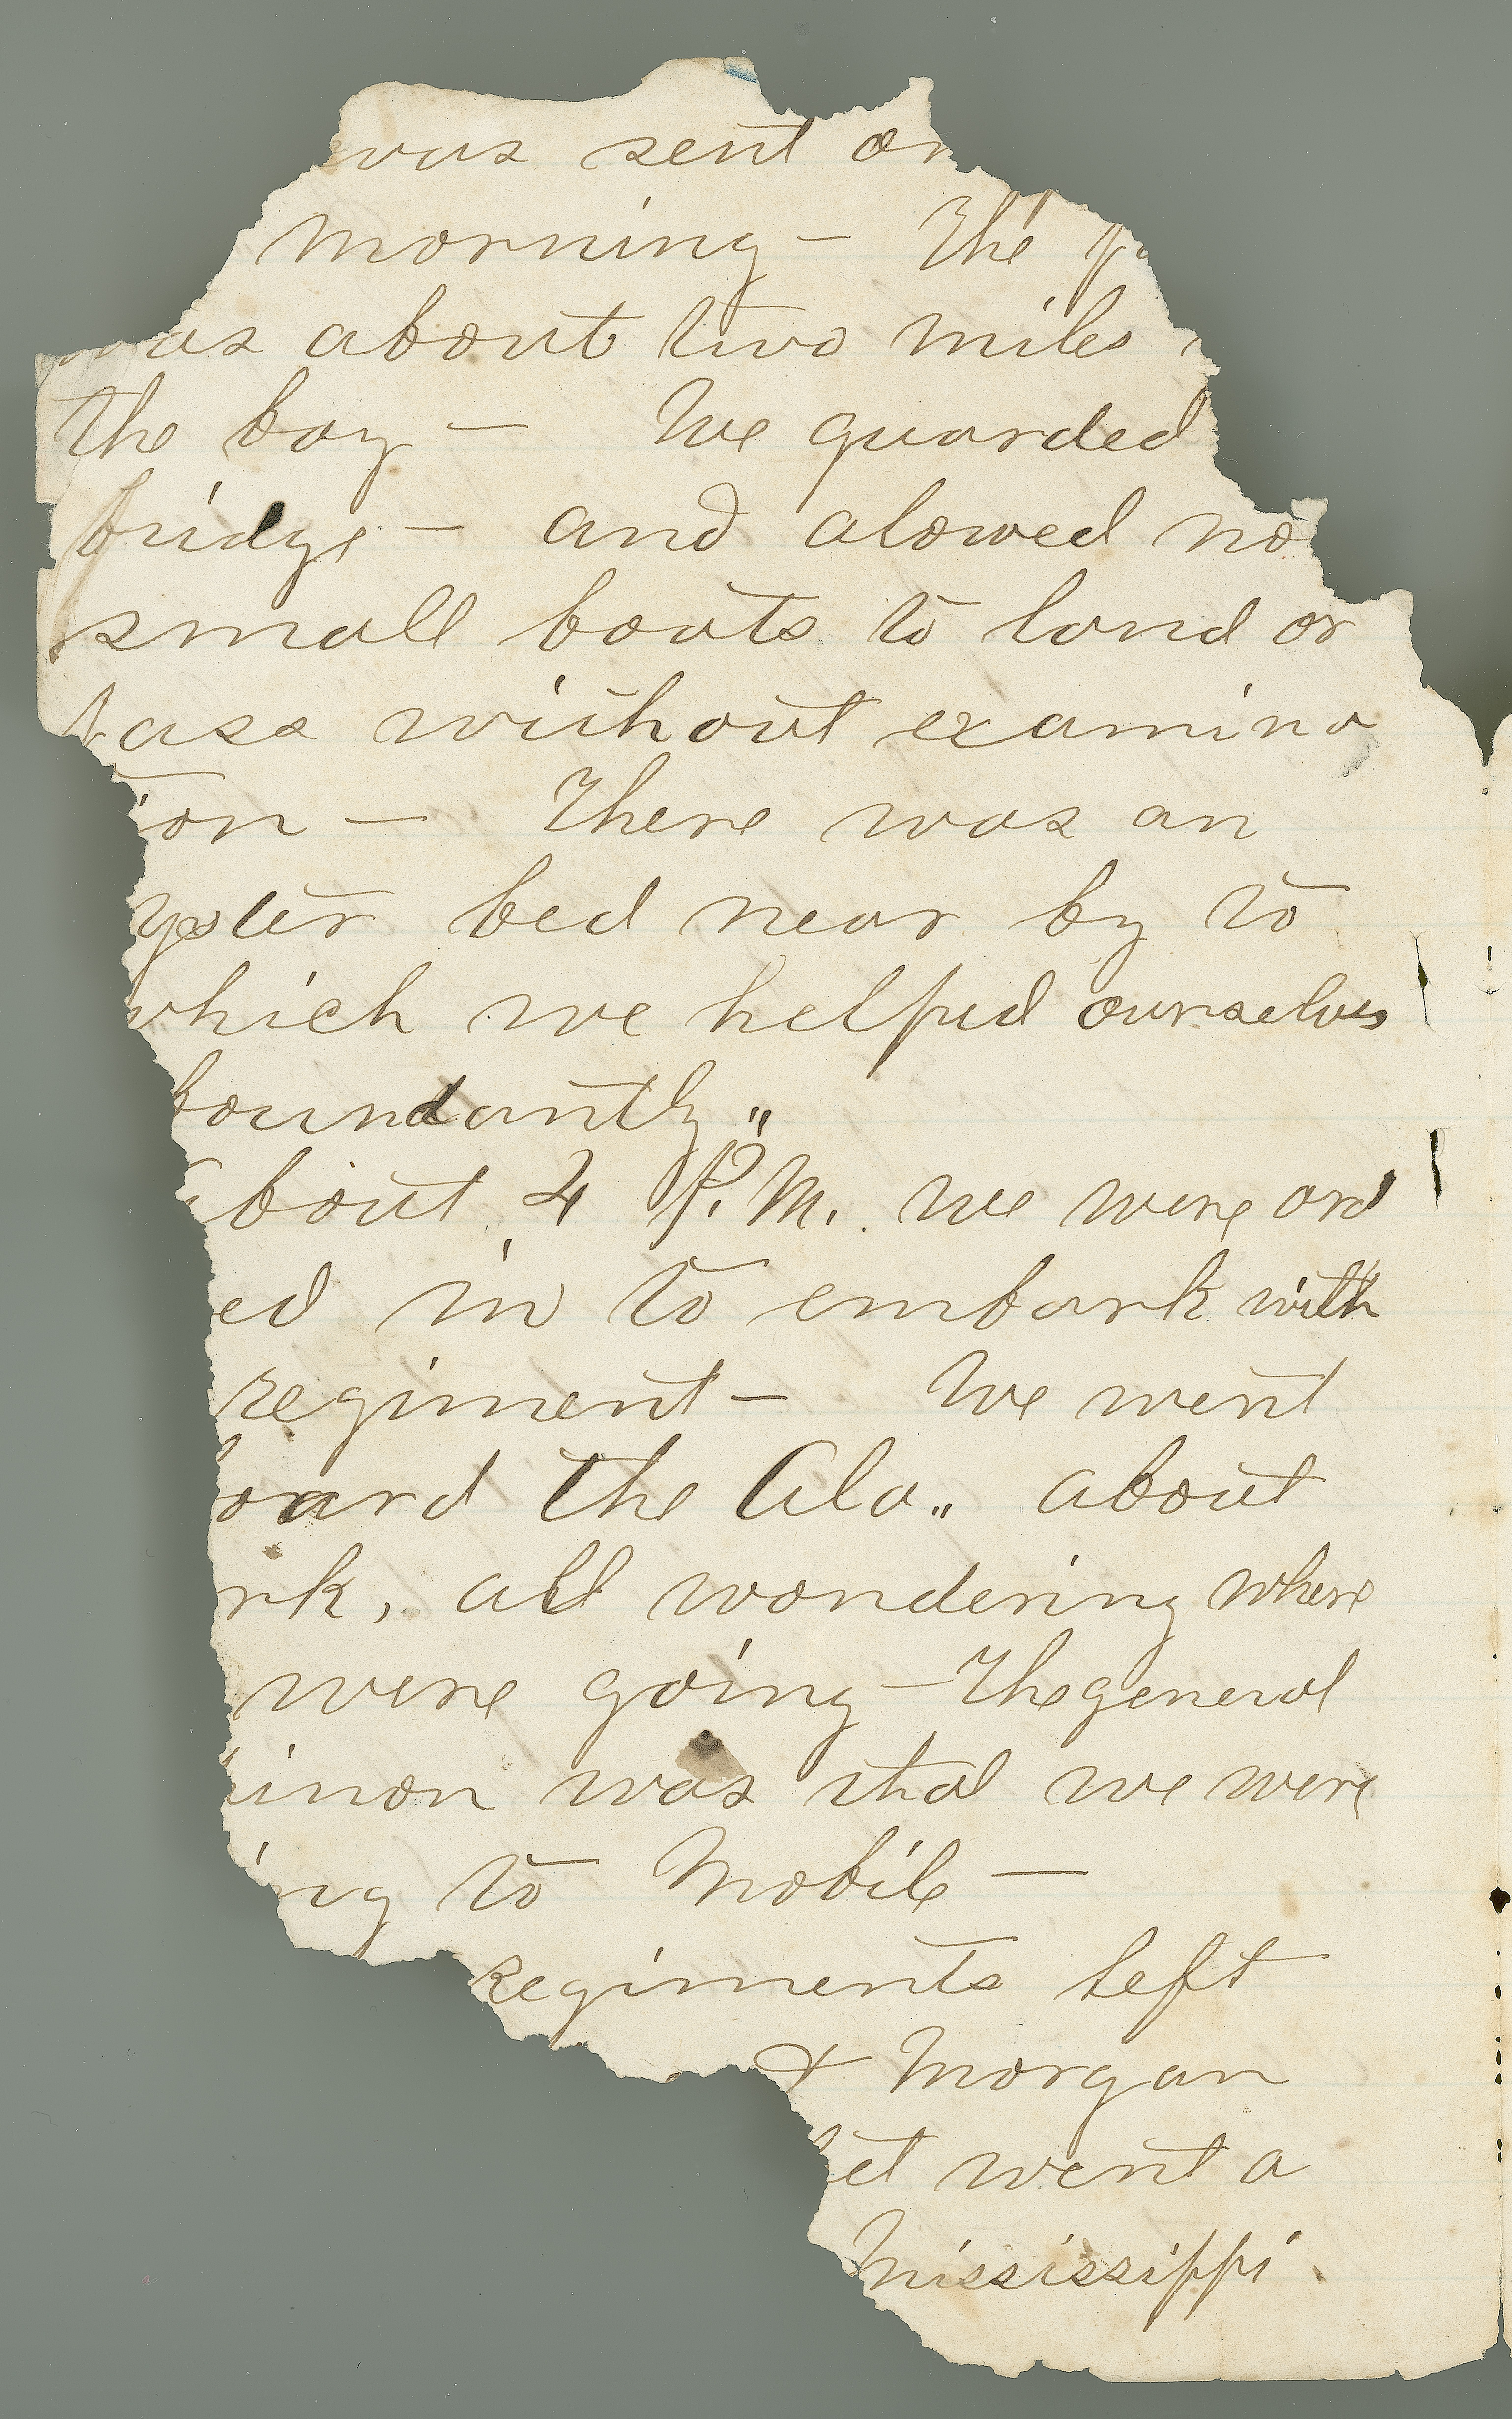 was sent on
morning — The
was about two miles
the bay — We guarded
bridge — and alowed no
small boats to land or
pass without examina
tion — There was an
yster bed near by to
which we helped ourselves
boundantly "
bout 4 P.M. we were ord
ed in to embark with
regiment — We went
board the Ala " about
rk, all wondering where
were going — The general
inion was that we were
ing to Mobile —
Regiments left
& Morgan
et went a
Mississippi